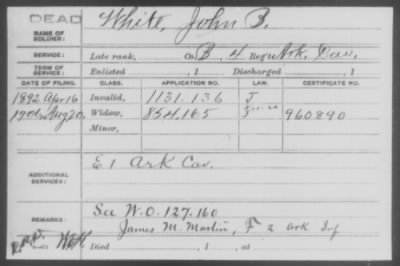 DEAD
NAME OF SOLDIER: White, John B.
SERVICE: Late rank, Co. B, 4 Reg't Ark. Cav.
TERM OF SERVICE: Enlisted , 1 Discharged , 1
DATE OF FILING. CLASS. APPLICATION NO. LAW. CERTIFICATE NO.
1892 Apr 16 Invalid, 1131.136 J
1906 Aug 20 Widow, 854,165 960890
Minor,
ADDITIONAL SERVICES: E 1 Ark Cav.
REMARKS: See W.O. 127.160
James M. Martin, F 2 Ark Inf
Died , 1 , at